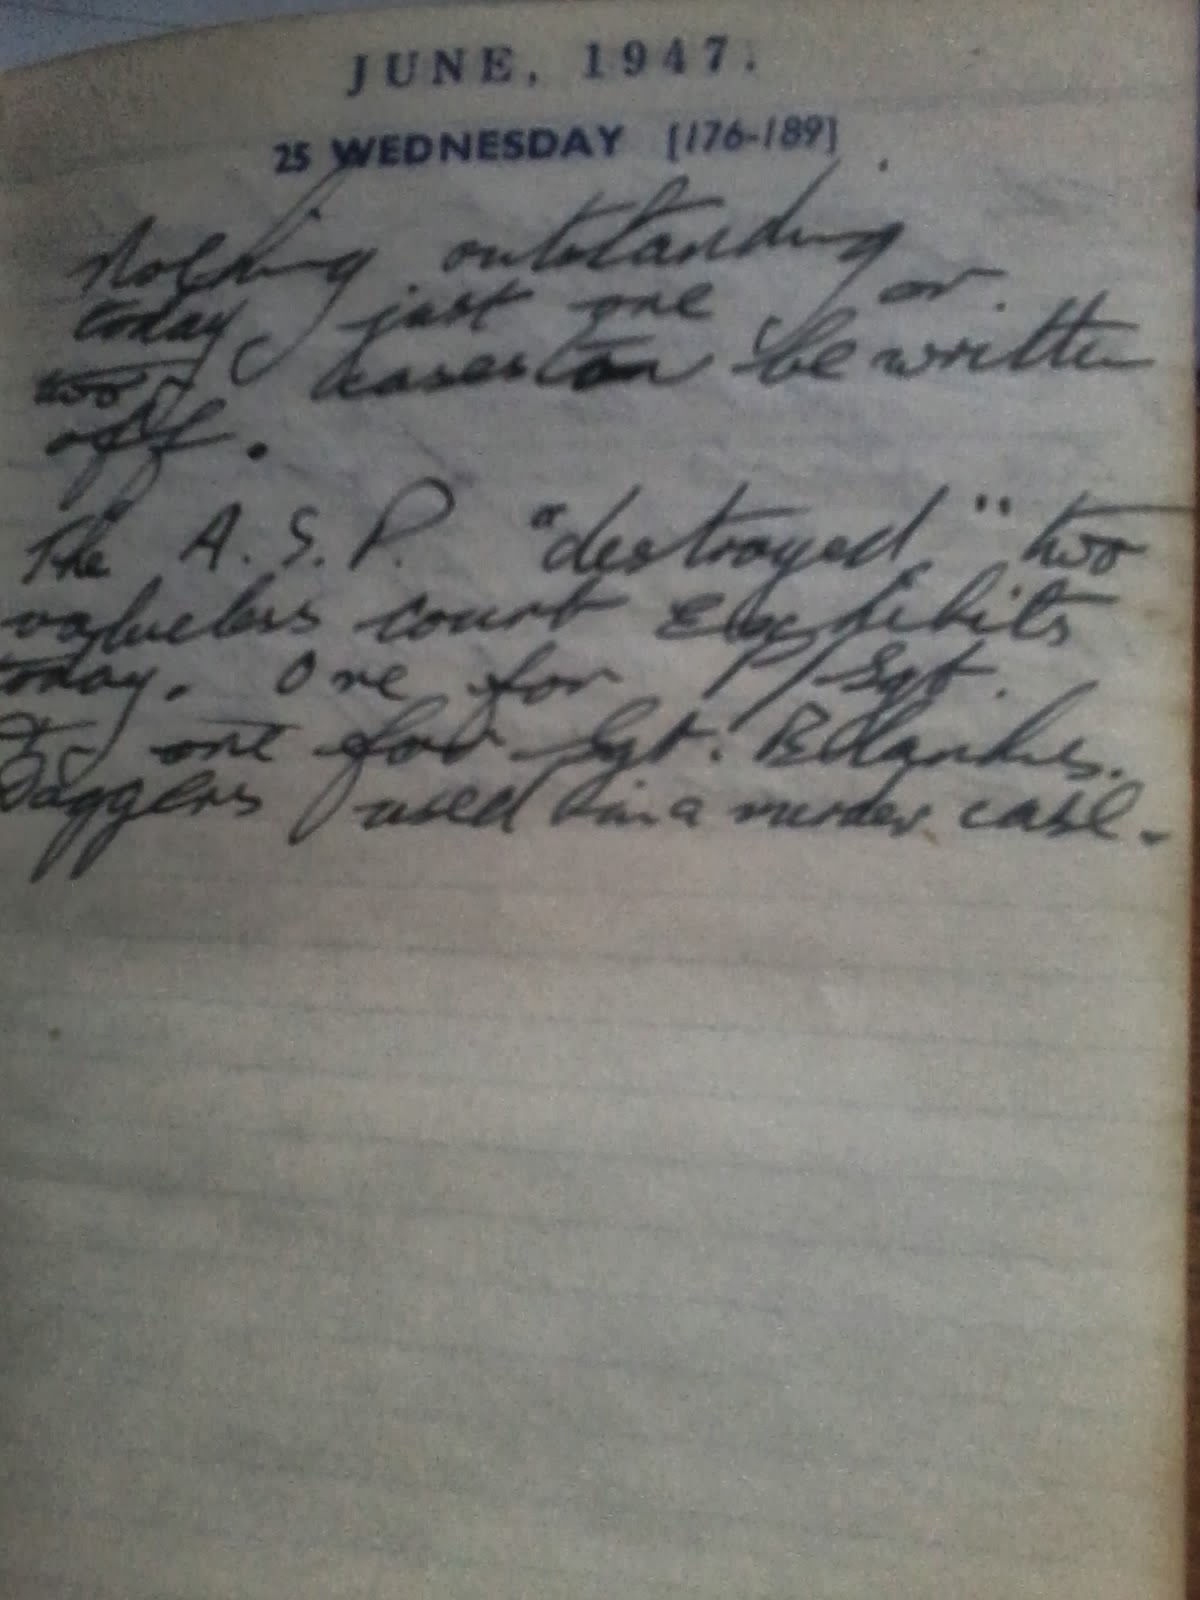 JUNE, 1947.
25 WEDNESDAY [176-189]
Nothing outstanding
today, just one or
two cases can be written
off.
The A.S.P. "destroyed" two
valueless court Exhibits
today. One for P/Sgt.
one for Sgt.
Daggers used in a murder case.